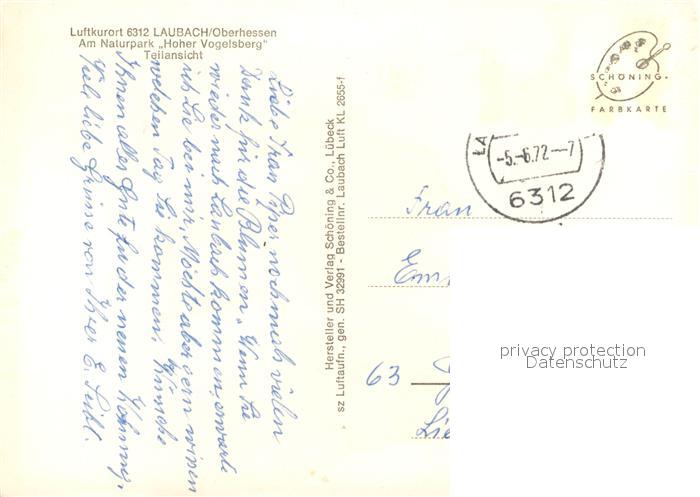 Luftkurort 6312 LAUBACH/Oberhessen
Am Naturpark „Hoher Vogelsberg"
Teilansicht
Liebe Frau Piper nochmals vielen
Dank für die Blumen. Wenn Sie
wieder nach Laubach kommen, erwarte
ich Sie bei mir, Möchte aber gern wissen
welchen Tag Sie kommen, Wünsche
Ihnen alles Gute in der neuen Wohnung.
Viele liebe Grüsse von Ihrer E. Seibl.
Hersteller und Verlag Schöning & Co., Lübeck
sz Luftaufn., gen. SH 32991 - Bestellnr. Laubach Luft KL 2655-f
SCHÖNING·
FARBKARTE
LA
-5.-6.72--7
6312
Frau
Em
63
Lie
privacy protection
Datenschutz